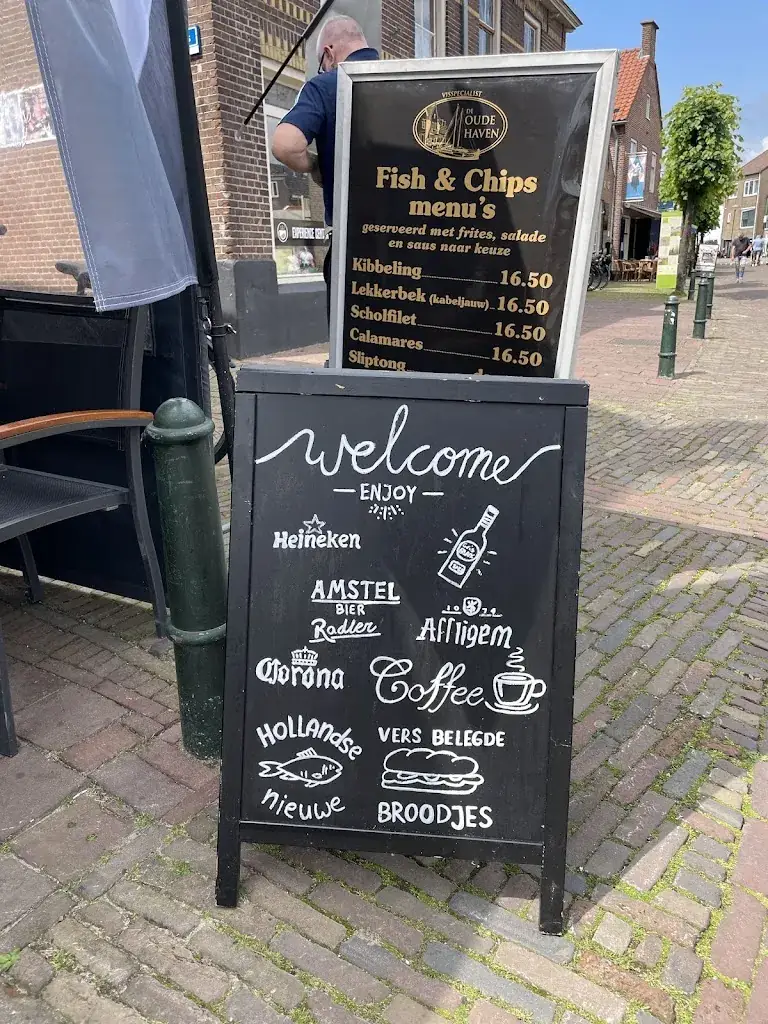 VISSPECIALIST
DE
OUDE
HAVEN
Fish & Chips
menu's
geserveerd met frites, salade
en saus naar keuze
Kibbeling 16.50
Lekkerbek (kabeljauw) 16.50
Scholfilet 16.50
Calamares 16.50
Sliptong
welcome
ENJOY
Heineken
AMSTEL
BIER
Radler
1074
Affligem
Corona
Coffee
HOLLANDSE
nieuwe
VERS BELEGDE
BROODJES